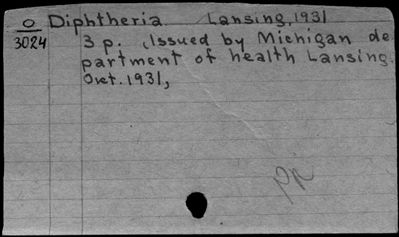 O Diphtheria Lansing, 1931
3024 3 p. Issued by Michigan de
partment of health Lansing.
Oct. 1931,